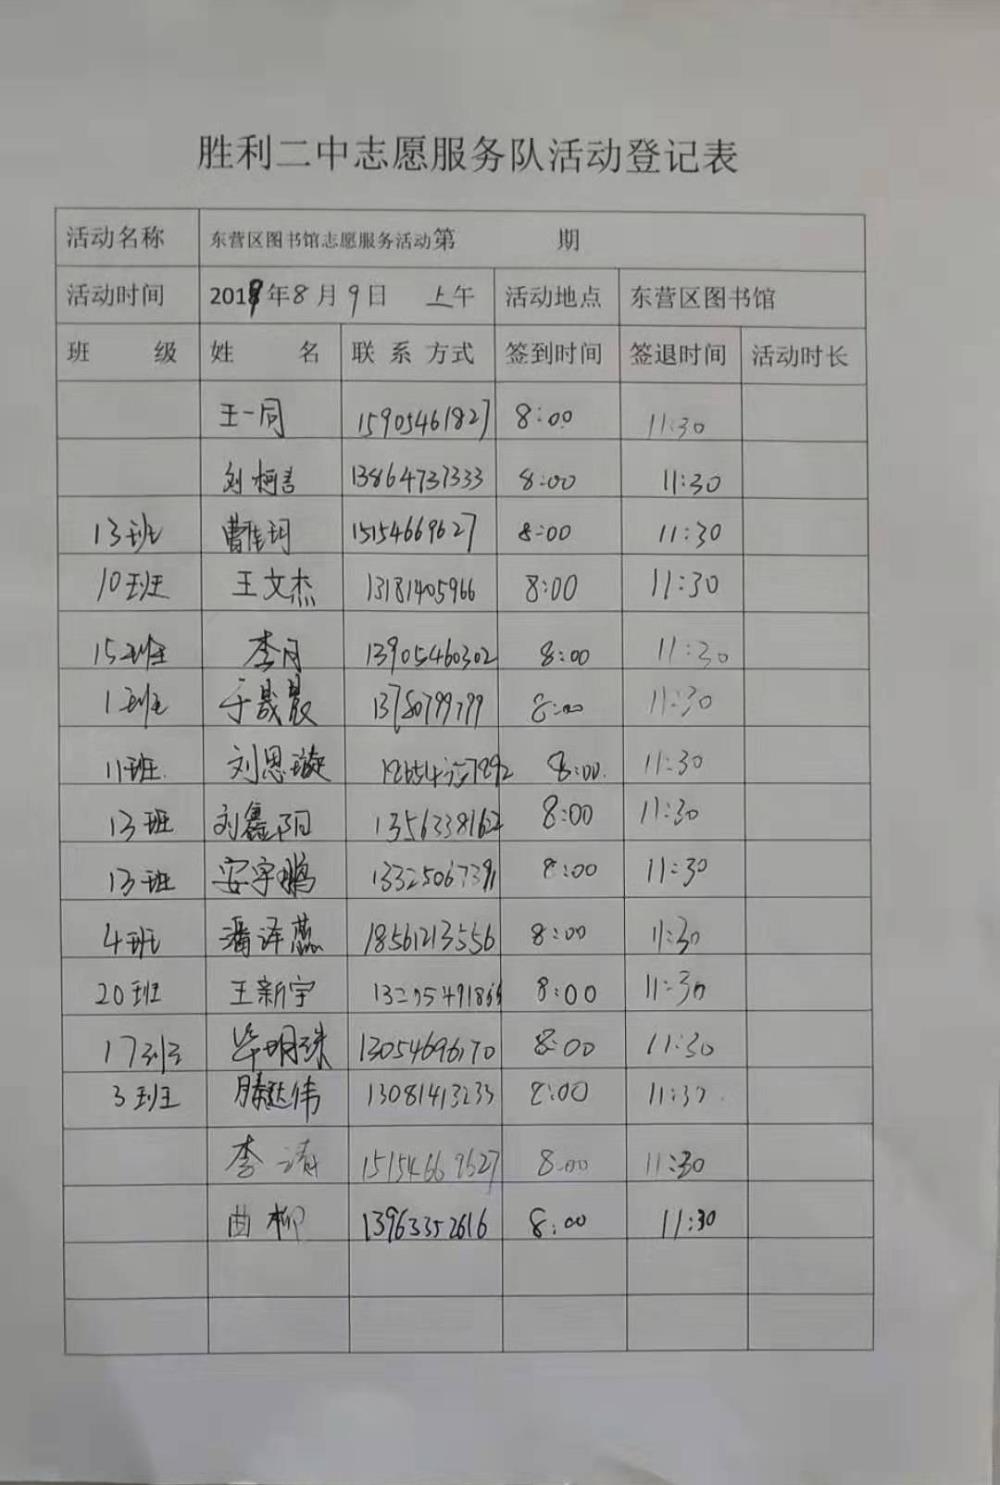 胜利二中志愿服务队活动登记表
活动名称 东营区图书馆志愿服务活动第 期
活动时间 2019年8月9日 上午 活动地点 东营区图书馆
班 级 姓 名 联系方式 签到时间 签退时间 活动时长
王一同 15905461827 8:00 11:30
刘柯言 13864731333 8:00 11:30
13班 曹佳珂 15154669627 8:00 11:30
10班 王文杰 13181405966 8:00 11:30
15班 李月 13905460302 8:00 11:30
1班 于晟晨 8:00 11:30
11班 刘思璇 8:00 11:30
13班 刘鑫阳 8:00 11:30
13班 安宇鹏 8:00 11:30
4班 潘译蕊 18561213556 8:00 11:30
20班 王新宇 8:00 11:30
17班 毕明珠 13054696170 8:00 11:30
3班 滕达伟 13081413233 8:00 11:30
李 15154669627 8:00 11:30
曲柳 13963352616 8:00 11:30